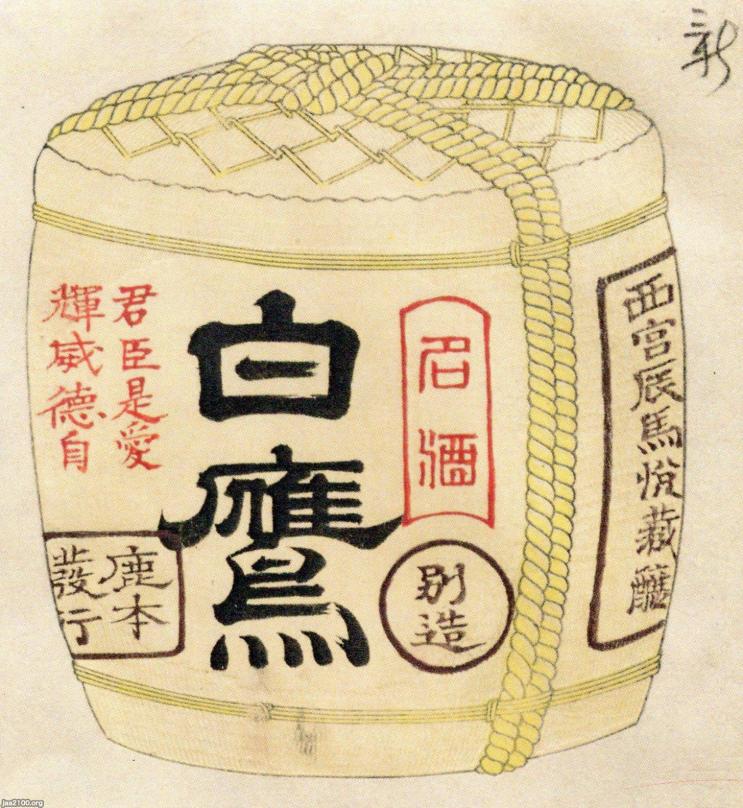 新
西宮辰馬悅藏釀
名酒
別造
白鷹
君臣是愛
輝威德自
鹿本
發行
jaa2100.org